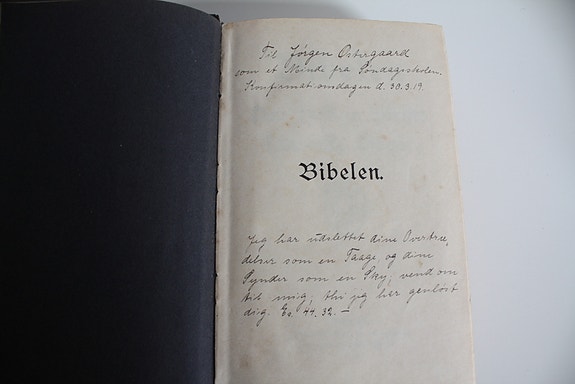 Til Jørgen Ostergaard
som et Minde fra Søndagsskolen.
Konfirmationsdagen d. 30.3.19.
Bibelen.
Jeg har udslettet dine Overtræ-
delser som en Taage, og dine
Synder som en Sky; vend om
til mig; thi jeg har genløst
dig. Es. 44.32. —